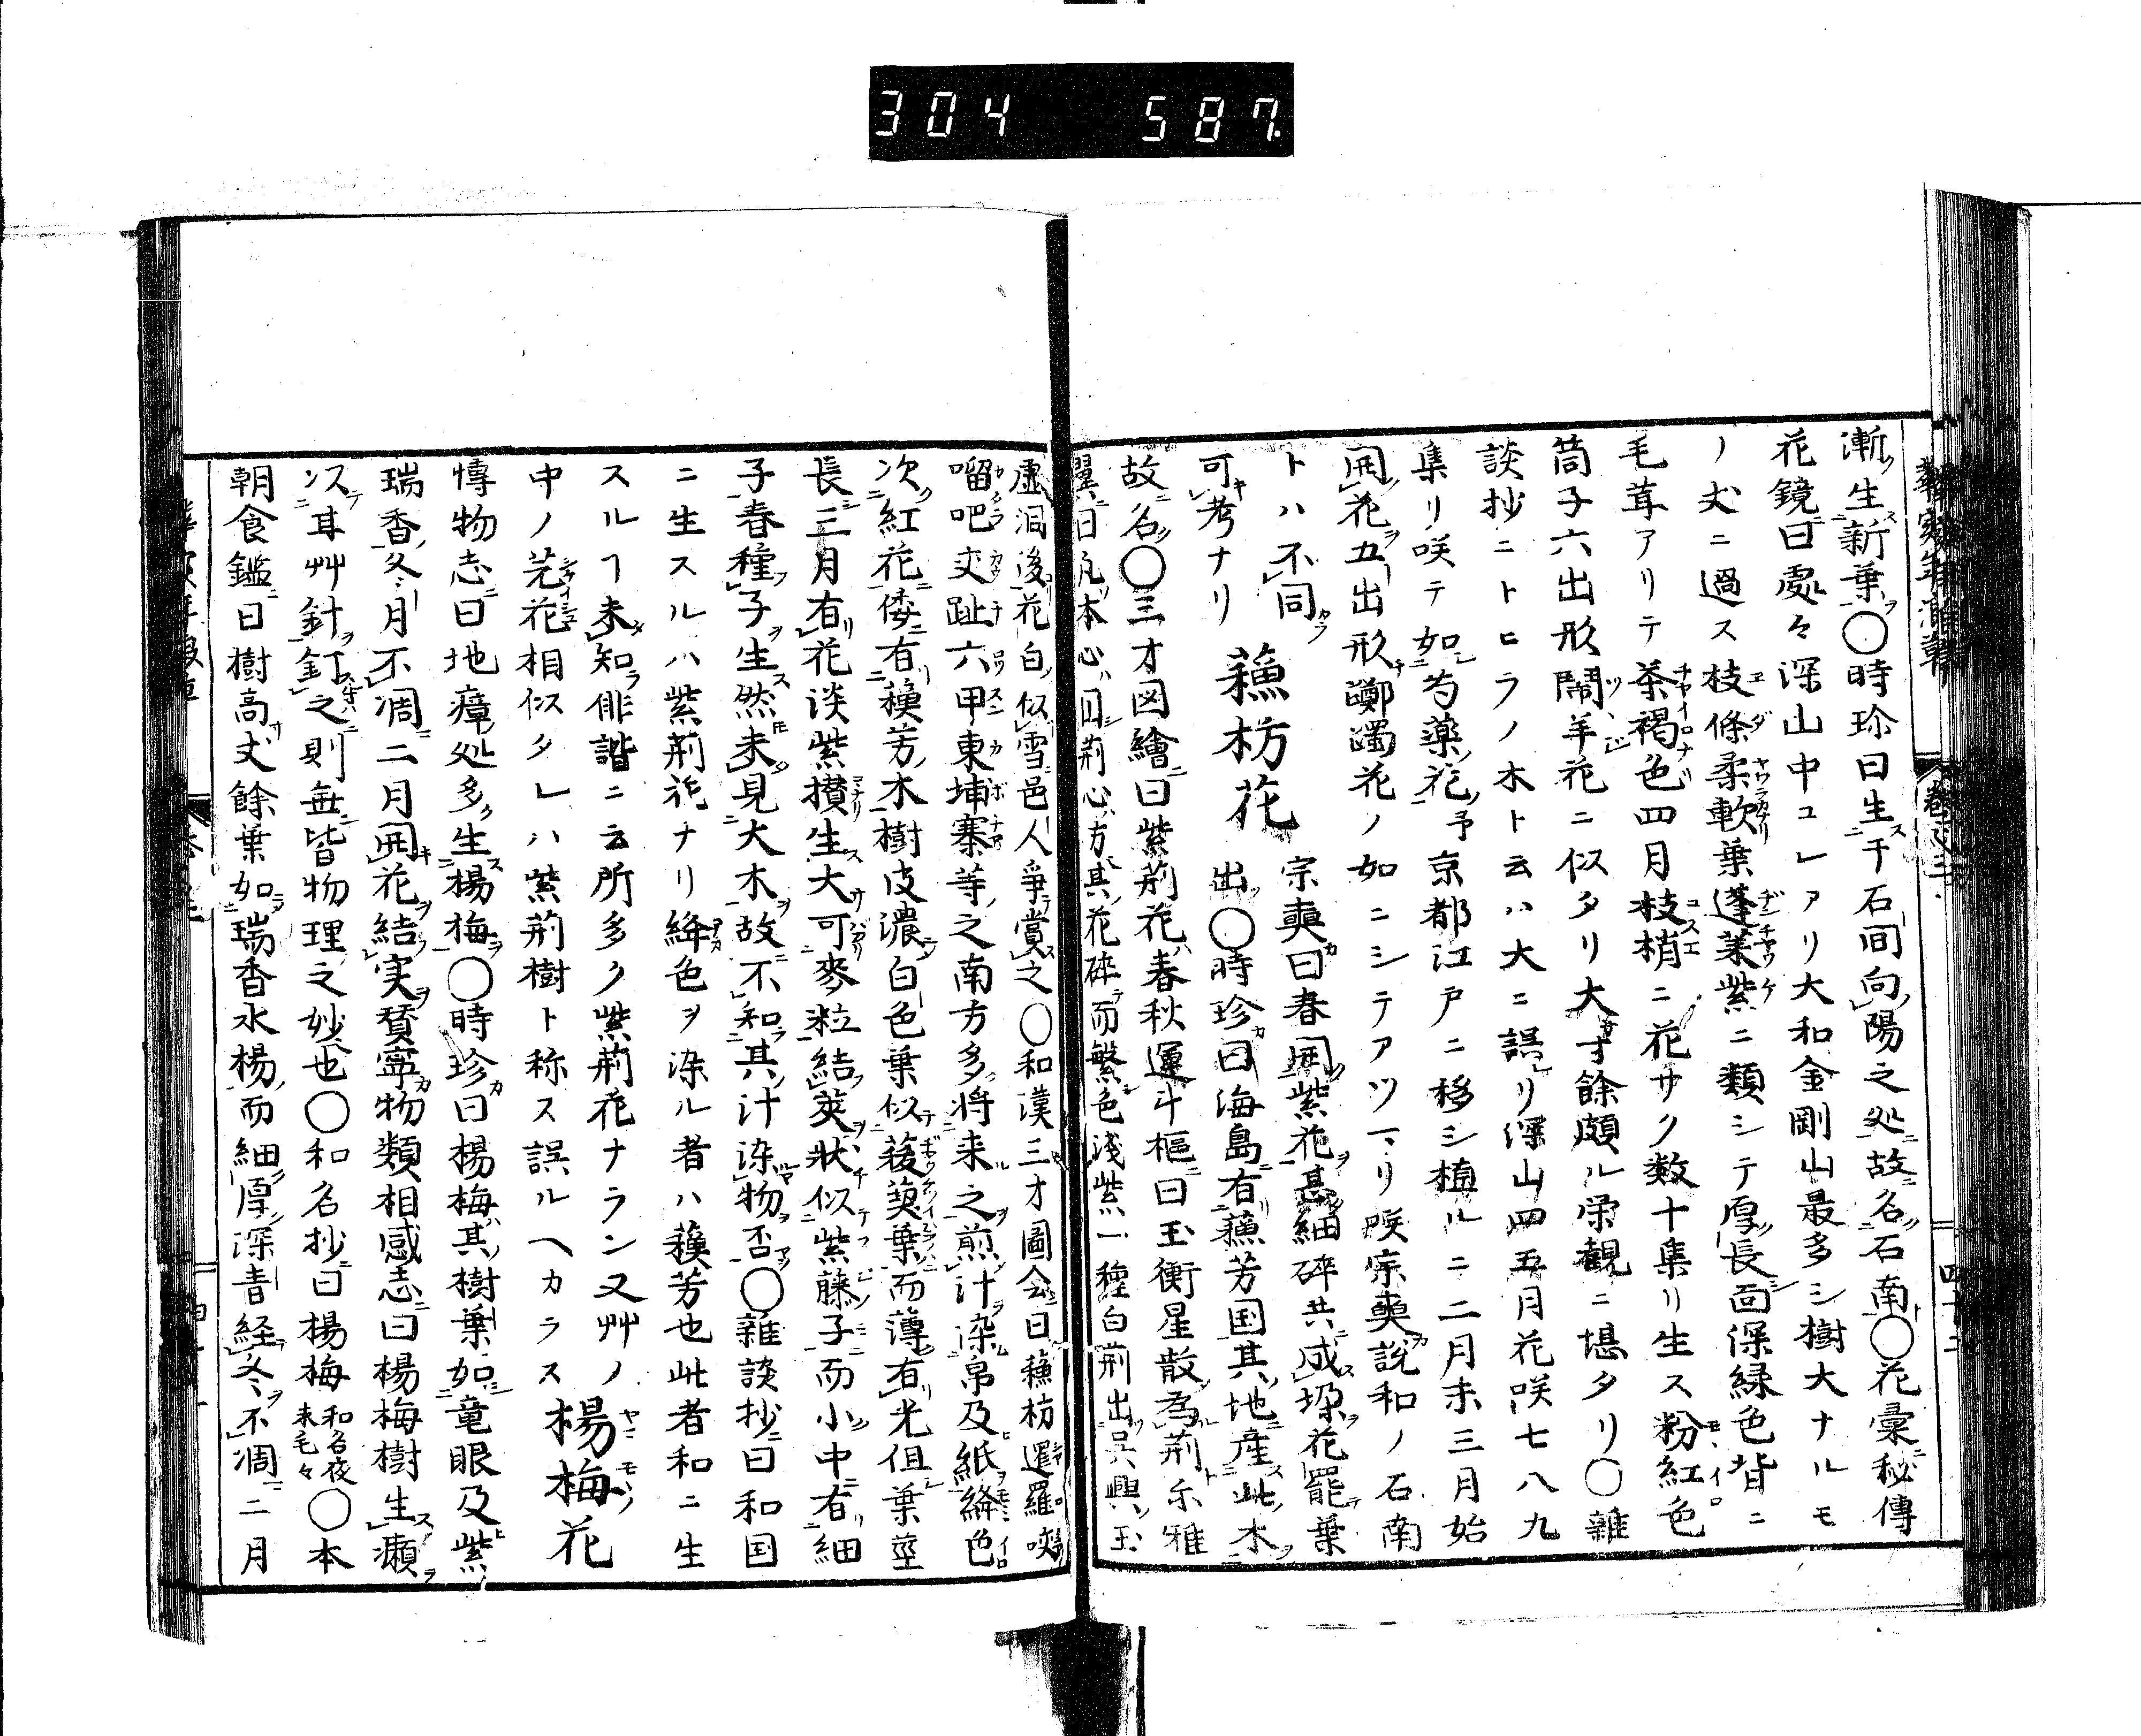 304 587
漸生新葉○時珍曰生于石间向陽之処故名石南○花彙秘傳
花鏡曰處々深山中ユレアリ大和金剛山最多シ樹大ナルモ
ノ丈ニ過ス枝條柔軟葉蓬莱紫ニ類シテ厚長面深緑色背ニ
毛茸アリテ茶褐色四月枝梢ニ花サク数十集リ生ス粉紅色
筒子六出形鬧羊花ニ似タリ大寸餘頗ル栄観ニ堪タリ○雜
談抄ニトヒラノ木ト云ハ大ニ誤リ深山四五月花咲七八九
集リ咲テ如芍薬花予京都江戸ニ移シ植ルニ二月末三月始
開花五出形躑躅花ノ如ニシテアツマリ咲宗奭説和ノ石南
トハ不同
可考ナリ
蘓枋花
宗奭曰春開紫花甚細碎共成塚花罷葉
出○時珍曰海島有蘓芳国其地産此木
故名○三才図繪曰紫荊花春秋運斗樞曰玉衡星散為荊尓雅
翼曰凡木心囙荊心方其花碎而繁色淺紫一種白荊出呉興玉
虚洞後花白似雪邑人爭賞之○和漢三才圖会曰蘓枋暹羅咬
𠺕吧交趾六甲東埔寨等之南方多将来之煎汁染帛及紙絳色
次紅花倭有蘓芳木樹皮濃白色葉似菝葜葉而薄有光但葉莖
長三月有花淡紫攅生大可麥粒結莢状似紫藤子而小中有細
子春種子生然未見大木故不知其汁染物否○雜談抄曰和国
ニ生スルハ紫荊花ナリ絳色ヲ染ル者ハ蘓芳也此者和ニ生
スルヿ未知俳諧ニ云所多ク紫荊花ナラン又艸ノ
中ノ芫花相似タレハ紫荊樹ト称ス誤ルヘカラス
楊梅花
慱物志曰地瘴処多生楊梅○時珍曰楊梅其樹葉如竜眼及紫
瑞香冬月不凋二月開花結実賛寧物類相感志曰楊梅樹生癩
以甘艸針釘之則無皆物理之妙也○和名抄曰楊梅和名夜末毛々○本
朝食鑑曰樹高丈餘葉如瑞香水楊而細厚深青経冬不凋二月